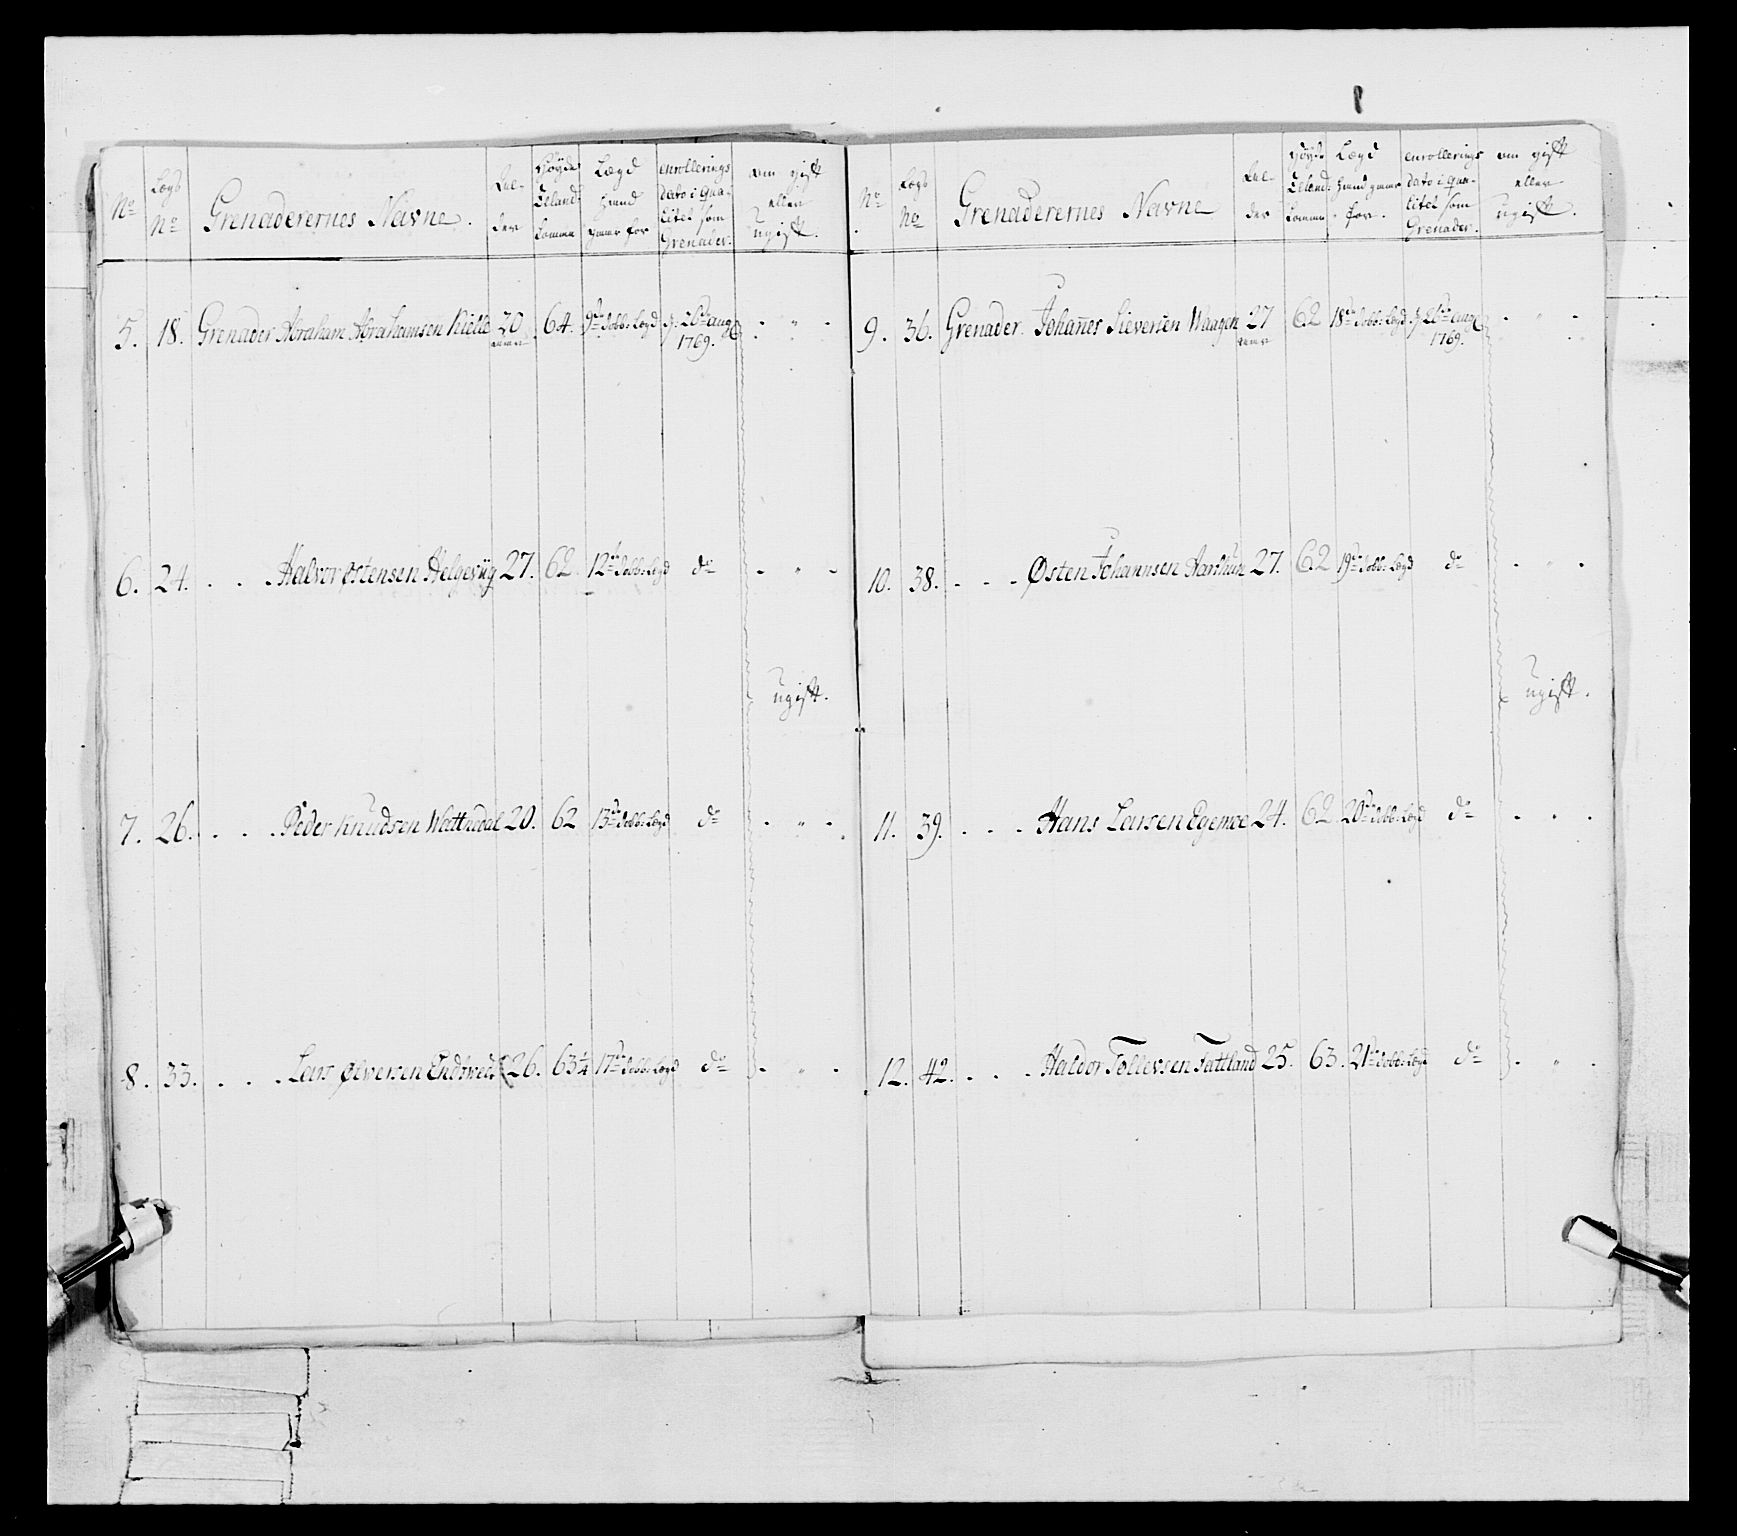 No
Legs No
Grenaderernes Navne.
Alder
Høyde Teland komme
Lægd hand giør for
enrollerings dato i Qualitet som Grenader.
om gift eller ugift.
5. 18. Grenader Abraham Abrahamsen 30 aar 64. 9de dobb: Legd p. 26de aug 1769. - " -
6. 24. - - Halvor Østensen 27. 62 12te dobb: Legd do - " -
ugift.
7. 26. - - Peder Knudsen 20. 62 13de dobb: Legd do - " -
8. 33. - - Lars Olversen 26. 63¼ 17de dobb: Legd do - " -
No
Legs No
Grenaderernes Navne
Alder
Høyde Teland komme
Lægd hand giør for.
enrollerings dato i Qualitet som Grenader.
om gift eller ugift.
9. 36. Grenader. Johañes Sieversen Waagen 27 aar 62 18de dobb: Legd p. 26de aug 1769. - " -
10. 38. - - - Østen Johannsen Aarhuu 27. 62 19de dobb: Legd do - " -
ugift.
11. 39. - - - Hans Larsen Egemoe 24. 62. 20de dobb: Legd do - " -
12. 42. - - - Haldor Tollevsen Tattland 25. 63. 21de dobb: Legd do - " -